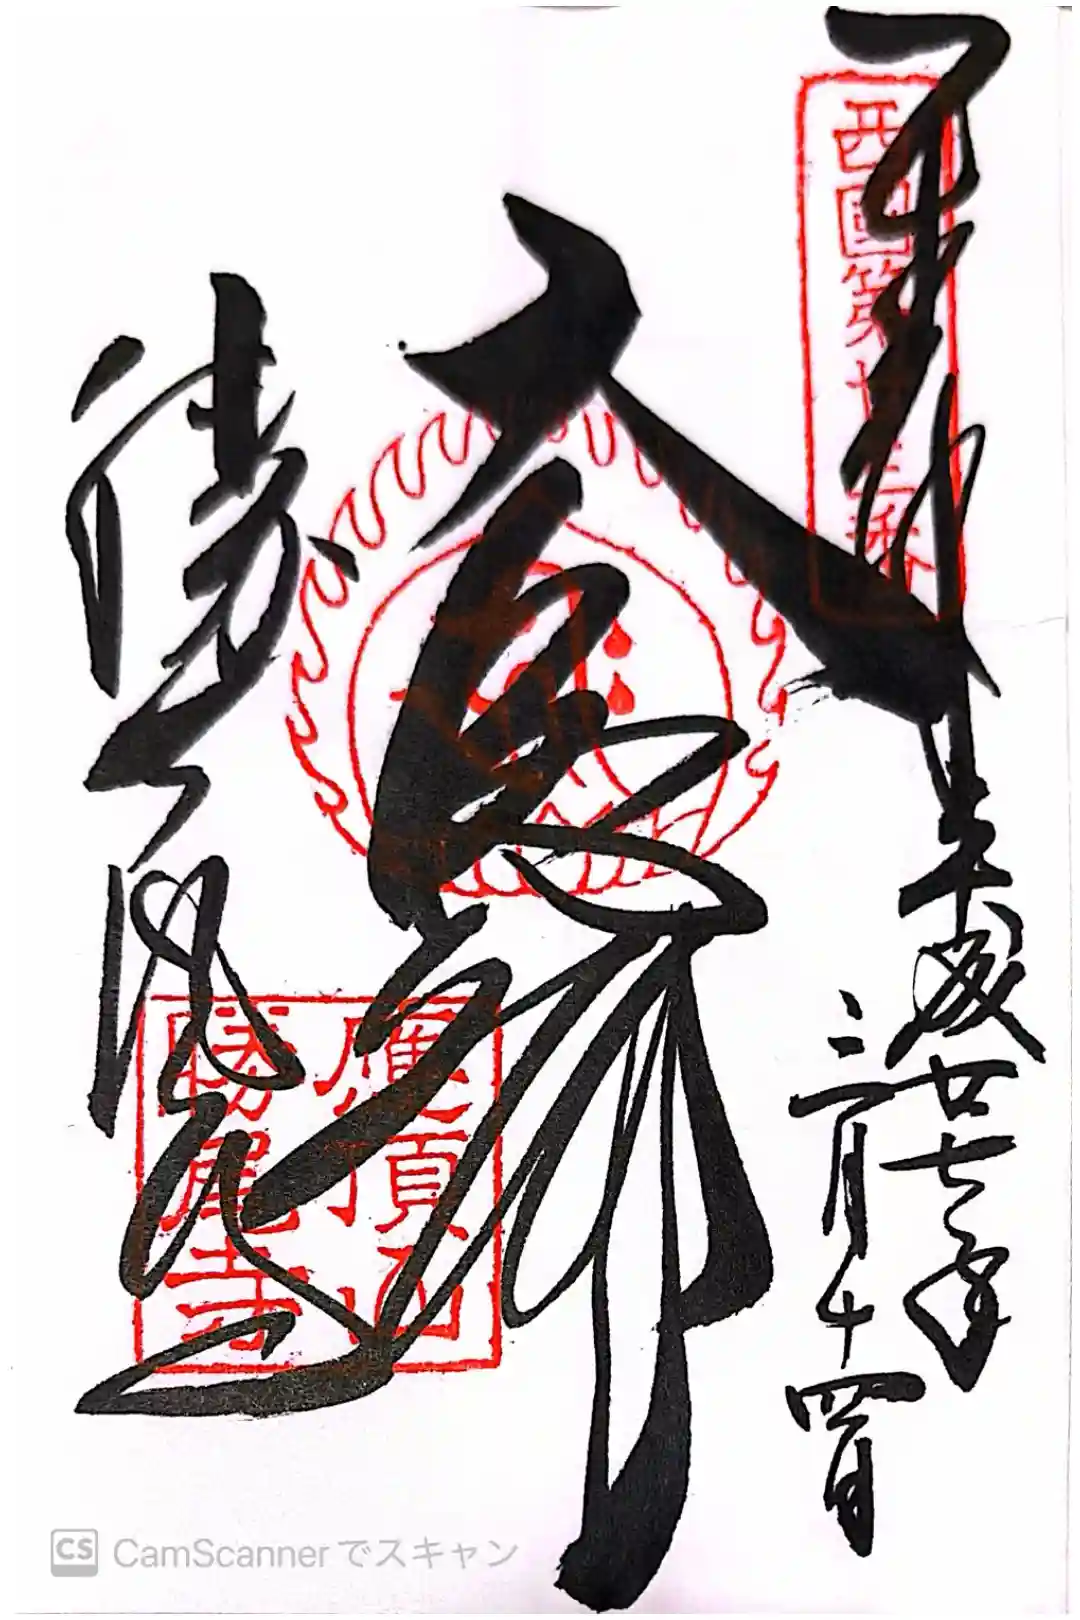 奉拝
平成廿七年
三月十四日
西國第廿三番
大悲殿
勝尾寺
應頂山
勝尾寺
CS CamScannerでスキャン